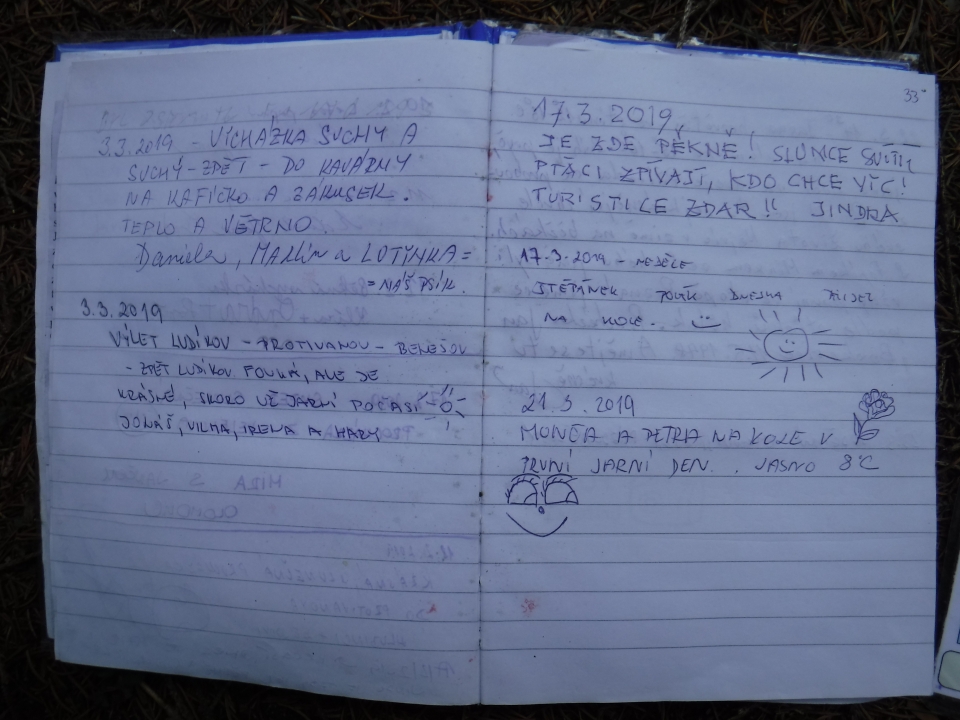 3.3.2019 - VÍCHÁZKA SUCHÝ A
SUCHÝ - ZPĚT - DO KAVÁRNY
NA KAFÍČKO A ZÁKUSEK.
TEPLO A VĚTRNO.
Daniela, MARTIN a LOTYNKA =
= NÁŠ PSÍK.
3.3.2019
VÝLET LUDÍKOV - PROTIVANOV - BENEŠOV
- ZPĚT LUDÍKOV FOUKÁ, ALE JE
KRÁSNÉ, SKORO UŽ JARNÍ POČASÍ
JONÁŠ, VILMA, IRENA A HARY
33
17.3.2019,
JE ZDE PĚKNĚ! SLUNCE SVÍTÍ
PTÁCI ZPÍVAJÍ, KDO CHCE VÍC!
TURISTICE ZDAR!! JINDRA
17.3.2019 - NEDĚLE
ŠTĚPÁNEK DNESKA PŘIJEL
NA KOLE.
21.3.2019
MONČA A PETRA NA KOLE V
PRVNÍ JARNÍ DEN.. JASNO 8°C